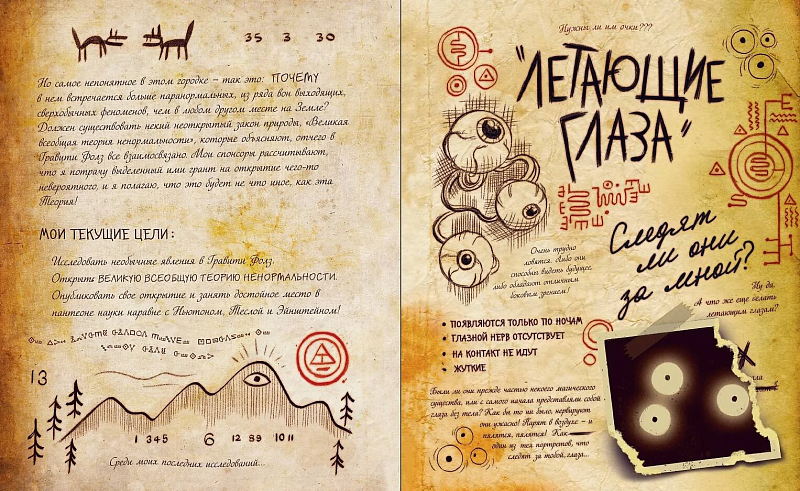 35 3 30
Но самое непонятное в этом городке – так это: ПОЧЕМУ
в нем встречается больше паранормальных, из ряда вон выходящих,
сверходычных феноменов, чем в любом другом месте на Земле?
Должен существовать некий неоткрытый закон природы, «Великая
всеобщая теория ненормальности», которые объясняют, отчего в
Гравити Фолз все взаимосвязано. Мои спонсоры рассчитывают,
что я потрачу выделенный ими грант на открытие чего-то
невероятного, и я полагаю, что это будет не что иное, как эта
Теория!
МОИ ТЕКУЩИЕ ЦЕЛИ:
Исследовать необычные явления в Гравити Фолз.
Открыть ВЕЛИКУЮ ВСЕОБЩУЮ ТЕОРИЮ НЕНОРМАЛЬНОСТИ.
Опубликовать свое открытие и занять достойное место в
пантеоне науки наравне с Ньютоном, Теслой и Эйнштейном!
13
1 345 6 12 89 10 11
Среди моих последних исследований...
Нужны ли им очки???
"ЛЕТАЮЩИЕ
ГЛАЗА"
Очень трудно
ловятся. Либо они
способны видеть будущее,
либо обладают отличным
боковым зрением!
Следят
ли они
за мной?
Ну да,
А что же еще делать
летающим глазам?
• ПОЯВЛЯЮТСЯ ТОЛЬКО ПО НОЧАМ
• ГЛАЗНОЙ НЕРВ ОТСУТСТВУЕТ
• НА КОНТАКТ НЕ ИДУТ
• ЖУТКИЕ
Были ли они прежде частью некоего магического
существа, или с самого начала представляли собой
глаза без тела? Как бы то ни было, нервируют
они ужасно! Парят в воздухе – и
пялятся, пялятся! Как
один из тех портретов, что
следят за тобой, глаза...